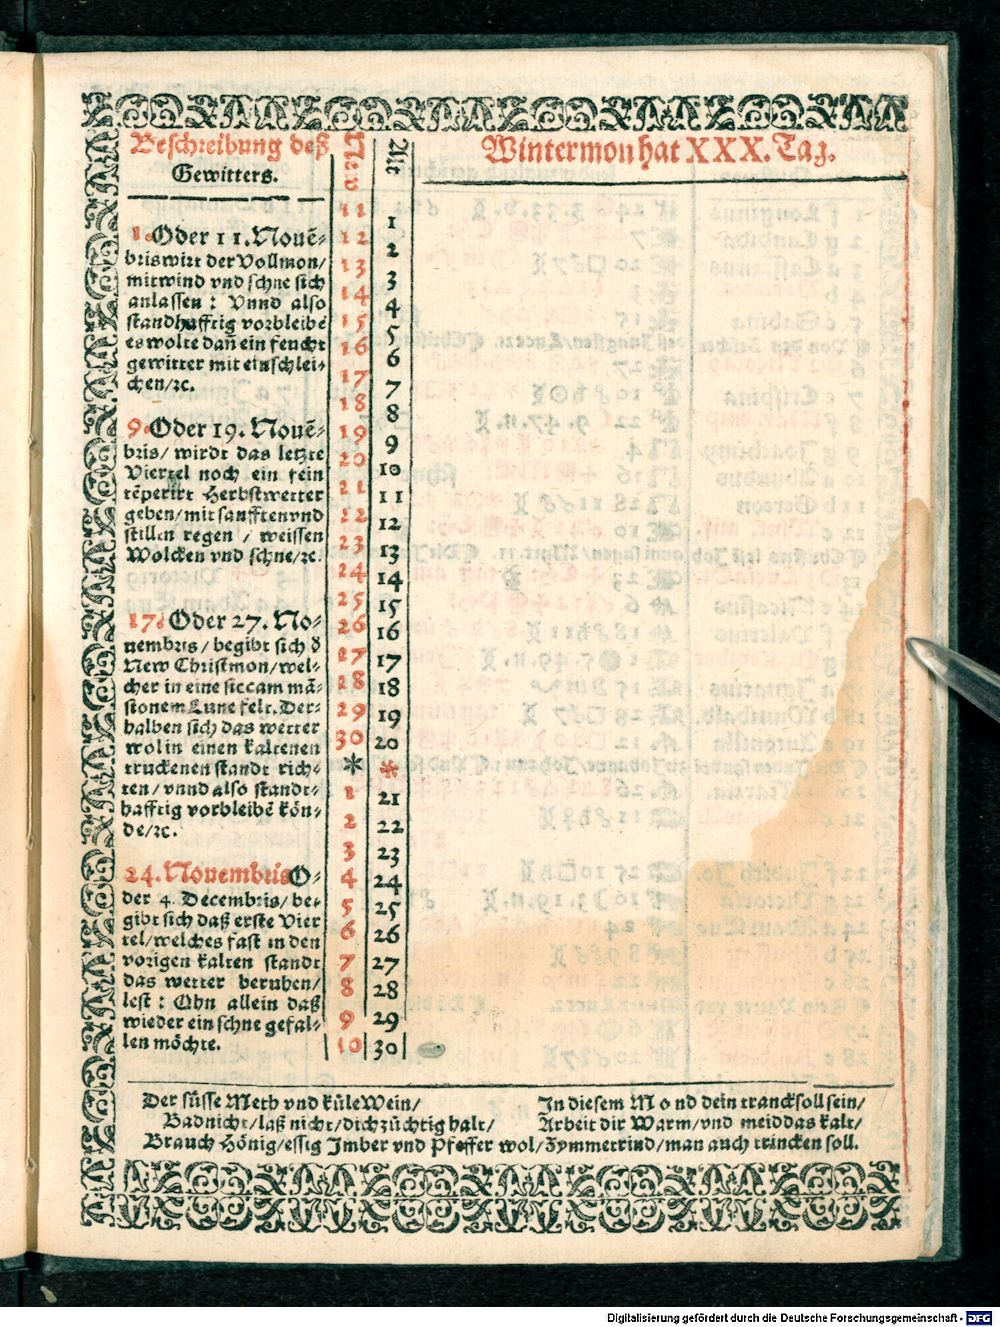 Beschreibung deß
Gewitters.
New
Alt
Wintermon hat XXX. Tag.
1. Oder 11. Nouē-
bris wirt der Vollmon/
mit wind vnd schne sich
anlassen: Vnnd also
standhafftig vorbleibē
es wolte dañ ein feucht
gewitter mit einschlei-
chen/ꝛc.
9. Oder 19. Nouē-
bris/ wirdt das letzte
Viertel noch ein fein
tēperirt Herbstwetter
geben/mit sanfften vnd
stillen regen / weissen
Wolcken vnd schne/ꝛc.
17. Oder 27. No-
nembris / begibt sich ð
New Christmon/wel-
cher in eine siccam mā-
sionem Lune felt. Der-
halben sich das wetter
wol in einen kaltenen
truckenen standt rich-
ten / vnnd also standt-
hafftig vorbleibē kön-
de/ꝛc.
24. Nouembris O-
der 4. Decembris/ be-
gibt sich daß erste Vier
tel/welches fast in den
vorigen kalten standt
das wetter beruhen/
lest: Ohn allein daß
wieder ein schne gefal-
len möchte.
11 1
12 2
13 3
14 4
15 5
16 6
17 7
18 8
19 9
20 10
21 11
22 12
23 13
24 14
25 15
26 16
27 17
28 18
29 19
30 20
* *
1 21
2 22
3 23
4 24
5 25
6 26
7 27
8 28
9 29
10 30
Der süsse Meth vnd küle Wein/ In diesem Mond dein tranck soll sein/
Bad nicht/laß nicht/dich züchtig halt/ Arbeit dir Warm/vnd meid das kalt/
Brauch Hönig/essig Imber vnd Pfeffer wol/Zymmetrind/man auch trincken soll.
Digitalisierung gefördert durch die Deutsche Forschungsgemeinschaft - DFG